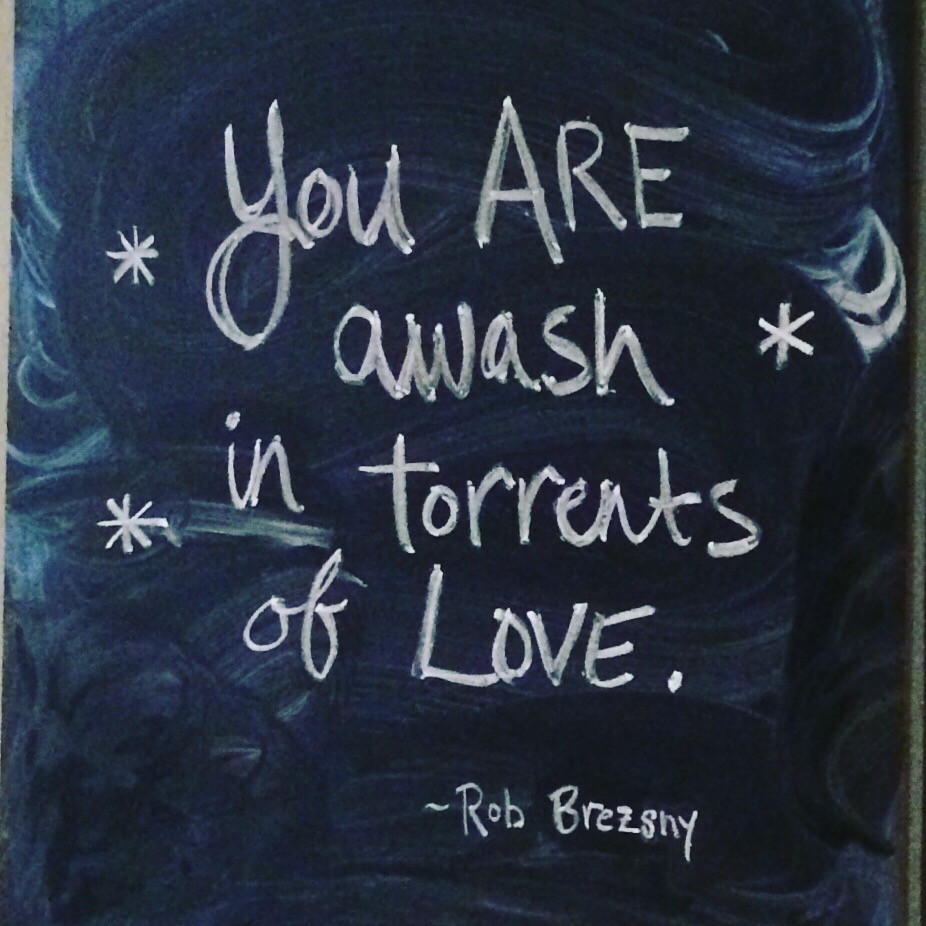 You ARE
awash
in torrents
of LOVE.
~Rob Brezsny